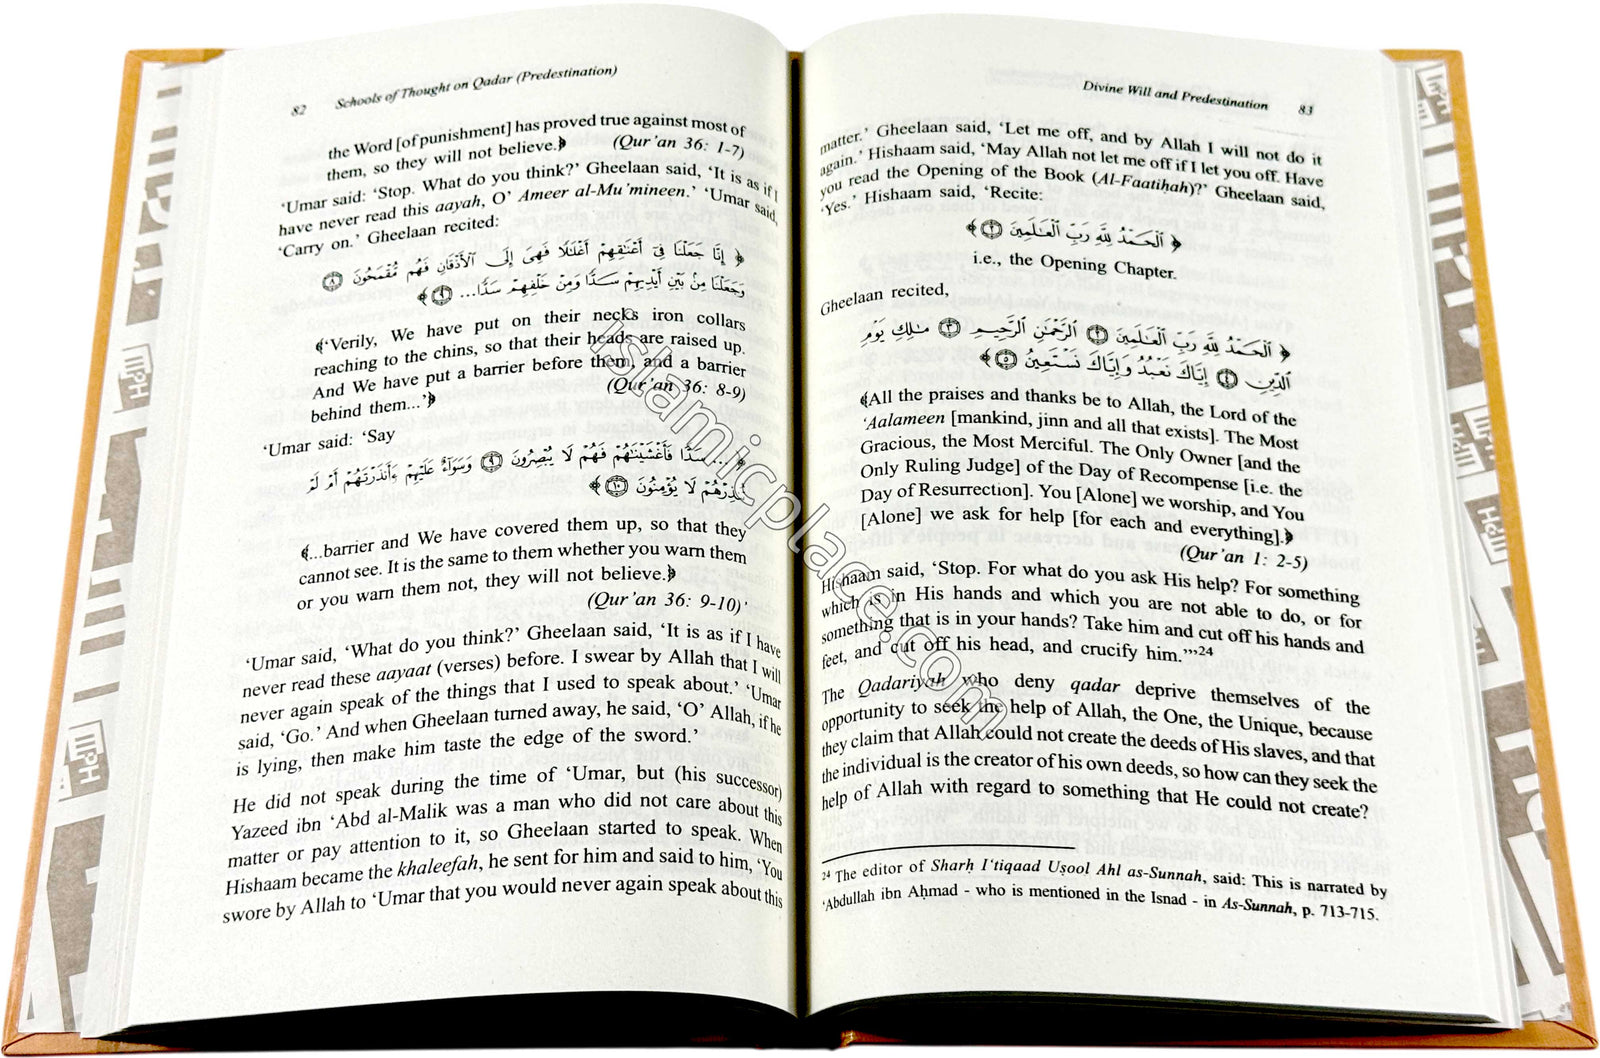 82 Schools of Thought on Qadar (Predestination)
the Word [of punishment] has proved true against most of
them, so they will not believe.﴿ (Qur'an 36: 1-7)
‘Umar said: ‘Stop. What do you think?’ Gheelaan said, ‘It is as if I
have never read this aayah, O’ Ameer al-Mu’mineen.’ ‘Umar said,
‘Carry on.’ Gheelaan recited:
﴿ إِنَّا جَعَلْنَا فِىٓ أَعْنَٰقِهِمْ أَغْلَٰلًا فَهِىَ إِلَى ٱلْأَذْقَانِ فَهُم مُّقْمَحُونَ ٨
وَجَعَلْنَا مِنۢ بَيْنِ أَيْدِيهِمْ سَدًّا وَمِنْ خَلْفِهِمْ سَدًّا... ٩ ﴾
﴾‘Verily, We have put on their necks iron collars
reaching to the chins, so that their heads are raised up.
And We have put a barrier before them, and a barrier
behind them...’﴿ (Qur'an 36: 8-9)
‘Umar said: ‘Say
﴿ ...سَدًّا فَأَغْشَيْنَٰهُمْ فَهُمْ لَا يُبْصِرُونَ ٩ وَسَوَآءٌ عَلَيْهِمْ ءَأَنذَرْتَهُمْ أَمْ لَمْ
تُنذِرْهُمْ لَا يُؤْمِنُونَ ١٠ ﴾
﴾...barrier and We have covered them up, so that they
cannot see. It is the same to them whether you warn them
or you warn them not, they will not believe.﴿
(Qur'an 36: 9-10)’
‘Umar said, ‘What do you think?’ Gheelaan said, ‘It is as if I have
never read these aayaat (verses) before. I swear by Allah that I will
never again speak of the things that I used to speak about.’ ‘Umar
said, ‘Go.’ And when Gheelaan turned away, he said, ‘O’ Allah, if he
is lying, then make him taste the edge of the sword.’
He did not speak during the time of ‘Umar, but (his successor)
Yazeed ibn ‘Abd al-Malik was a man who did not care about this
matter or pay attention to it, so Gheelaan started to speak. When
Hishaam became the khaleefah, he sent for him and said to him, ‘You
swore by Allah to ‘Umar that you would never again speak about this
Divine Will and Predestination 83
matter.’ Gheelaan said, ‘Let me off, and by Allah I will not do it
again.’ Hishaam said, ‘May Allah not let me off if I let you off. Have
you read the Opening of the Book (Al-Faatiḥah)?’ Gheelaan said,
‘Yes.’ Hishaam said, ‘Recite:
﴿ ٱلْحَمْدُ لِلَّهِ رَبِّ ٱلْعَٰلَمِينَ ٢ ﴾
i.e., the Opening Chapter.
Gheelaan recited,
﴿ ٱلْحَمْدُ لِلَّهِ رَبِّ ٱلْعَٰلَمِينَ ٢ ٱلرَّحْمَٰنِ ٱلرَّحِيمِ ٣ مَٰلِكِ يَوْمِ
ٱلدِّينِ ٤ إِيَّاكَ نَعْبُدُ وَإِيَّاكَ نَسْتَعِينُ ٥ ﴾
﴾All the praises and thanks be to Allah, the Lord of the
‘Aalameen [mankind, jinn and all that exists]. The Most
Gracious, the Most Merciful. The Only Owner [and the
Only Ruling Judge] of the Day of Recompense [i.e. the
Day of Resurrection]. You [Alone] we worship, and You
[Alone] we ask for help [for each and everything].﴿
(Qur'an 1: 2-5)
Hishaam said, ‘Stop. For what do you ask His help? For something
which is in His hands and which you are not able to do, or for
something that is in your hands? Take him and cut off his hands and
feet, and cut off his head, and crucify him.’”²⁴
The Qadariyah who deny qadar deprive themselves of the
opportunity to seek the help of Allah, the One, the Unique, because
they claim that Allah could not create the deeds of His slaves, and that
the individual is the creator of his own deeds, so how can they seek the
help of Allah with regard to something that He could not create?
²⁴ The editor of Sharḥ I‘tiqaad Uṣool Ahl as-Sunnah, said: This is narrated by
‘Abdullah ibn Aḥmad - who is mentioned in the Isnad - in As-Sunnah, p. 713-715.
Islamicplace.com
IIPH
IIPH
IIPH